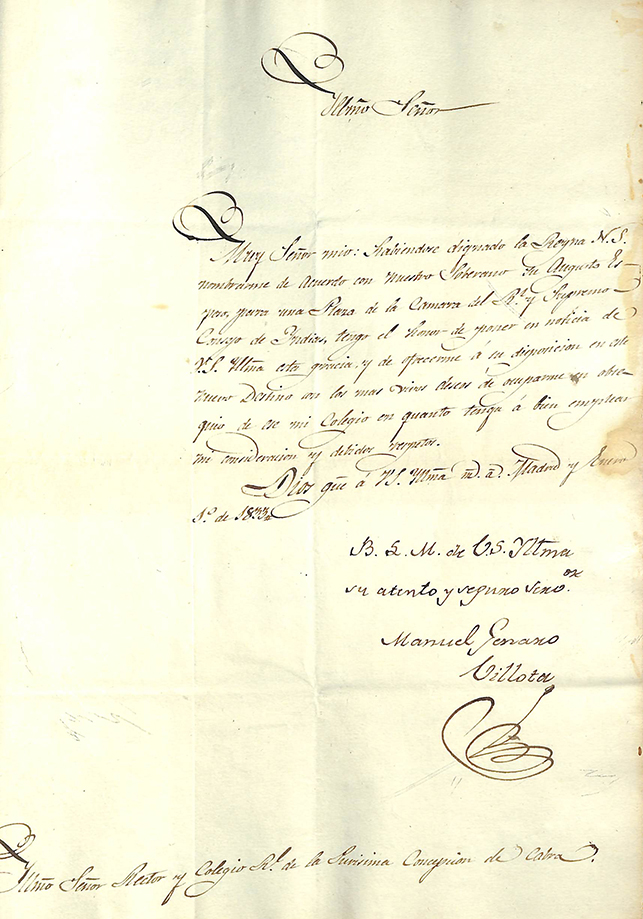 Yltmo Señor
Muy Señor mio: habiendose dignado la Reyna N.S.
nombrarme de Acuerdo con nuestro Soberano su Augusto Es-
poso, para una Plaza de la Camara del Rl. y Supremo
Consejo de Indias, tengo el honor de poner en noticia de
V.S. Yltma esta gracia, y de ofrecerme á su disposicion en este
nuevo Destino con los mas vivos deseos de ocuparme en obse-
quio de ese mi Colegio en quanto tenga á bien emplear
mi consideracion y debidos respetos.
Dios gue á V.S. Yltma m. a. Madrid y Enero
1º de 1833.
B. L. M. de V.S. Yltma
su atento y seguro servor.
Manuel Genaro
Villota
Yltmo Señor Rector y Colegio Rl. de la Purisima Concepcion de Cabra.